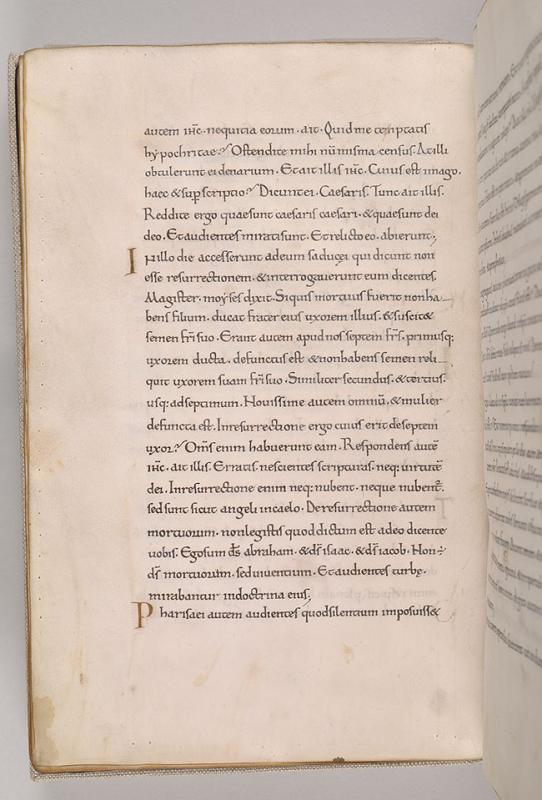 autem ihc̄. nequitia eorum. ait. Quid me temptatis
hypochritae? Ostendite mihi nūmisma census. At illi
obtulerunt ei denarium. Et ait illis ihc̄. Cuius est imago.
haec & sup̄scriptio? Dicunt ei. Caesaris. Tunc ait illis.
Reddite ergo quae sunt caesaris caesari. & quae sunt dei
deo. Et audientes mirati sunt. Et relicto eo. abierunt;
In illo die accesserunt ad eum saducęi qui dicunt non
esse resurrectionem. & interrogauerunt eum dicentes.
Magister. moyses dixit. Si quis mortuus fuerit non ha
bens filium. ducat frater eius uxorem illius. & suscit&
semen fr̄i suo. Erant autem apud nos septem fr̄s. & primus
uxorem ducta. defunctus est & non habens semen reli
quit uxorem suam fr̄i suo. Similiter secundus. & tertius.
usq; ad septimum. Nouissime autem omniū. & mulier
defuncta est. In resurrectione ergo cuius erit de septem
uxor? Om̄s enim habuerunt eam. Respondens autē
ihc̄. ait illis. Erratis nescientes scripturas. neq; uirtutē
dei. In resurrectione enim neq; nubent. neque nubent̄.
sed sunt sicut angeli in caelo. De resurrectione autem
mortuorum. non legistis quod dictum est a deo dicente
uobis. Ego sum d̄s abraham. & d̄s isaac. & d̄s iacob. Non÷
d̄s mortuorum. sed uiuentium. Et audientes turbę.
mirabantur in doctrina eius;
Pharisaei autem audientes quod silentium imposuiss&